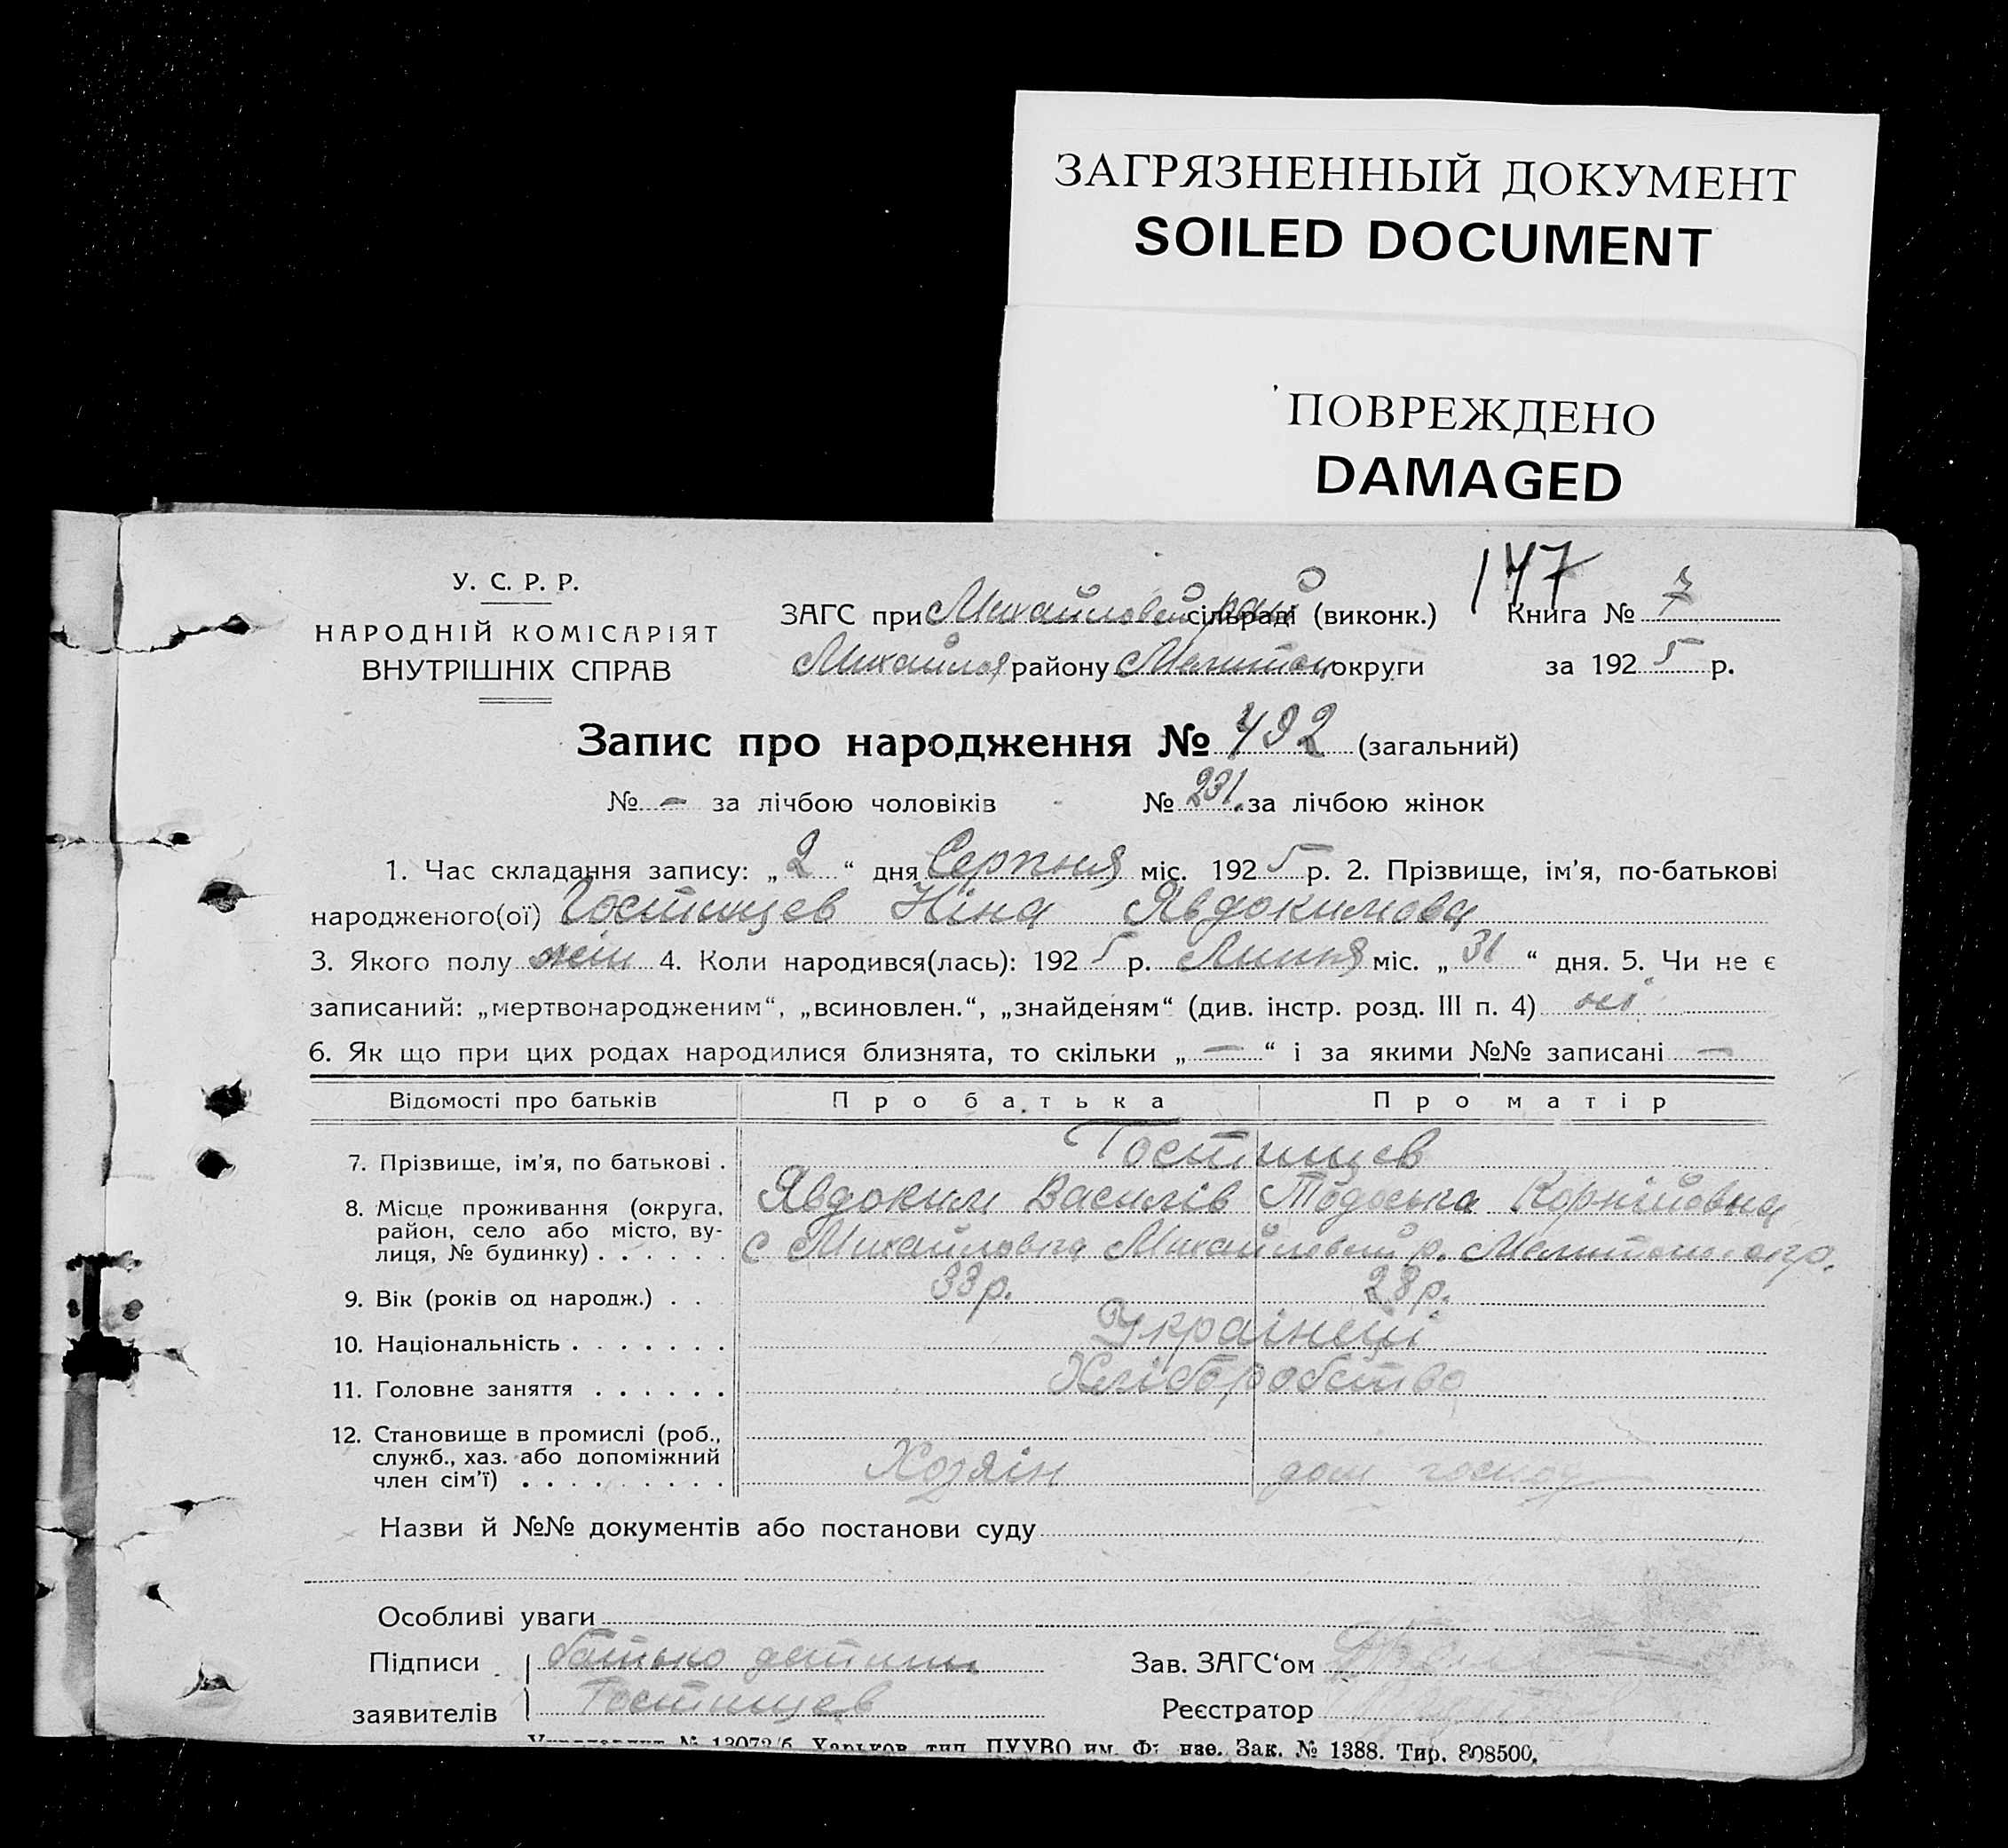 ЗАГРЯЗНЕННЫЙ ДОКУМЕНТ
SOILED DOCUMENT
ПОВРЕЖДЕНО
DAMAGED
147
У. С. Р. Р.
НАРОДНІЙ КОМІСАРІЯТ
ВНУТРІШНІХ СПРАВ
ЗАГС при Михайловськ сільраді рай (виконк.)
Михайлов району Мелитоп округи
Книга № 7
за 1925 р.
Запис про народження № 492 (загальний)
№ – за лічбою чоловіків № 231. за лічбою жінок
1. Час складання запису: „2“ дня Серпня міс. 1925 р. 2. Прізвище, ім'я, по-батькові
народженого(ої) Гостищев Ніна Явдокимова
3. Якого полу жін 4. Коли народився(лась): 1925 р. Липня міс. „31“ дня. 5. Чи не є
записаний: „мертвонародженим“, „всиновлен.“, „знайденям“ (див. інстр. розд. III п. 4) ні
6. Як що при цих родах народилися близнята, то скільки „–“ і за якими №№ записані –
Відомості про батьків Про батька Про матір
7. Прізвище, ім'я, по батькові . Гостищев
Явдоким Василів Тодоська Корніїовна
8. Місце проживання (округа,
район, село або місто, ву-
лиця, № будинку) . . . . . . с Михайловка Михайловськ р. Мелитоп окр.
9. Вік (років од народж.) . . 33 р. 28 р.
10. Національність . . . . . . . Українці
11. Головне заняття . . . . . . Хліборобство
12. Становище в промислі (роб.,
служб., хаз. або допоміжний
член сім'ї) . . . . . . . . . Хозяін дом господ
Назви й №№ документів або постанови суду
Особливі уваги
Підписи батько дитини
заявителів Гостищев
Зав. ЗАГС'ом
Реєстратор
№ 13073/б. Харьков, тип. ПУУВО им. Зак. № 1388. Тир. 808500.